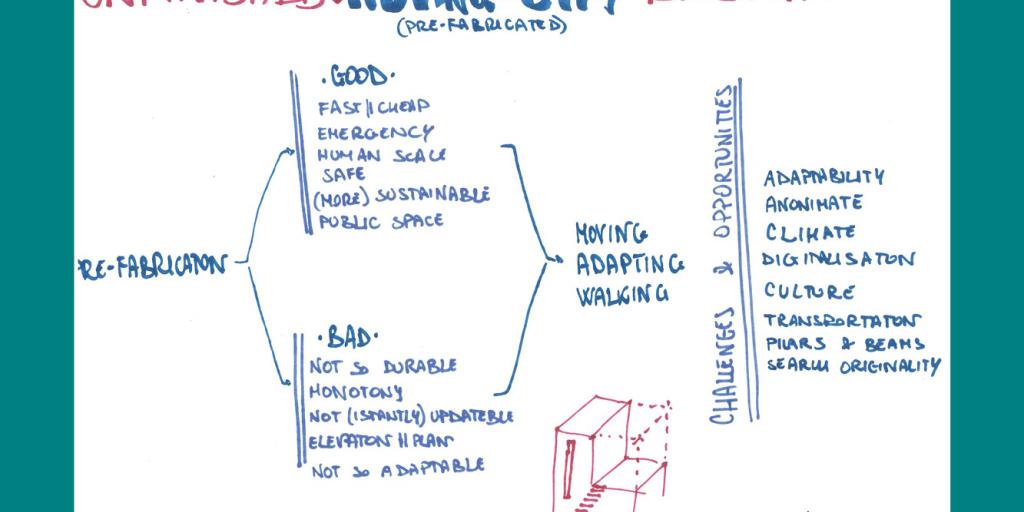 (PRE-FABRICATED)
·GOOD·
FAST // CHEAP
EMERGENCY
HUMAN SCALE
SAFE
(MORE) SUSTAINABLE
PUBLIC SPACE
PRE-FABRICATION
·BAD·
NOT SO DURABLE
MONOTONY
NOT (ISTANTLY) UPDATEBLE
ELEVATION // PLAN
NOT SO ADAPTABLE
MOVING
ADAPTING
WALKING
CHALLENGES & OPPORTUNITIES
ADAPTABILITY
ANONIMATE
CLIMATE
DIGITALISATION
CULTURE
TRANSPORTATION
PILARS & BEAMS
SEARCH ORIGINALITY